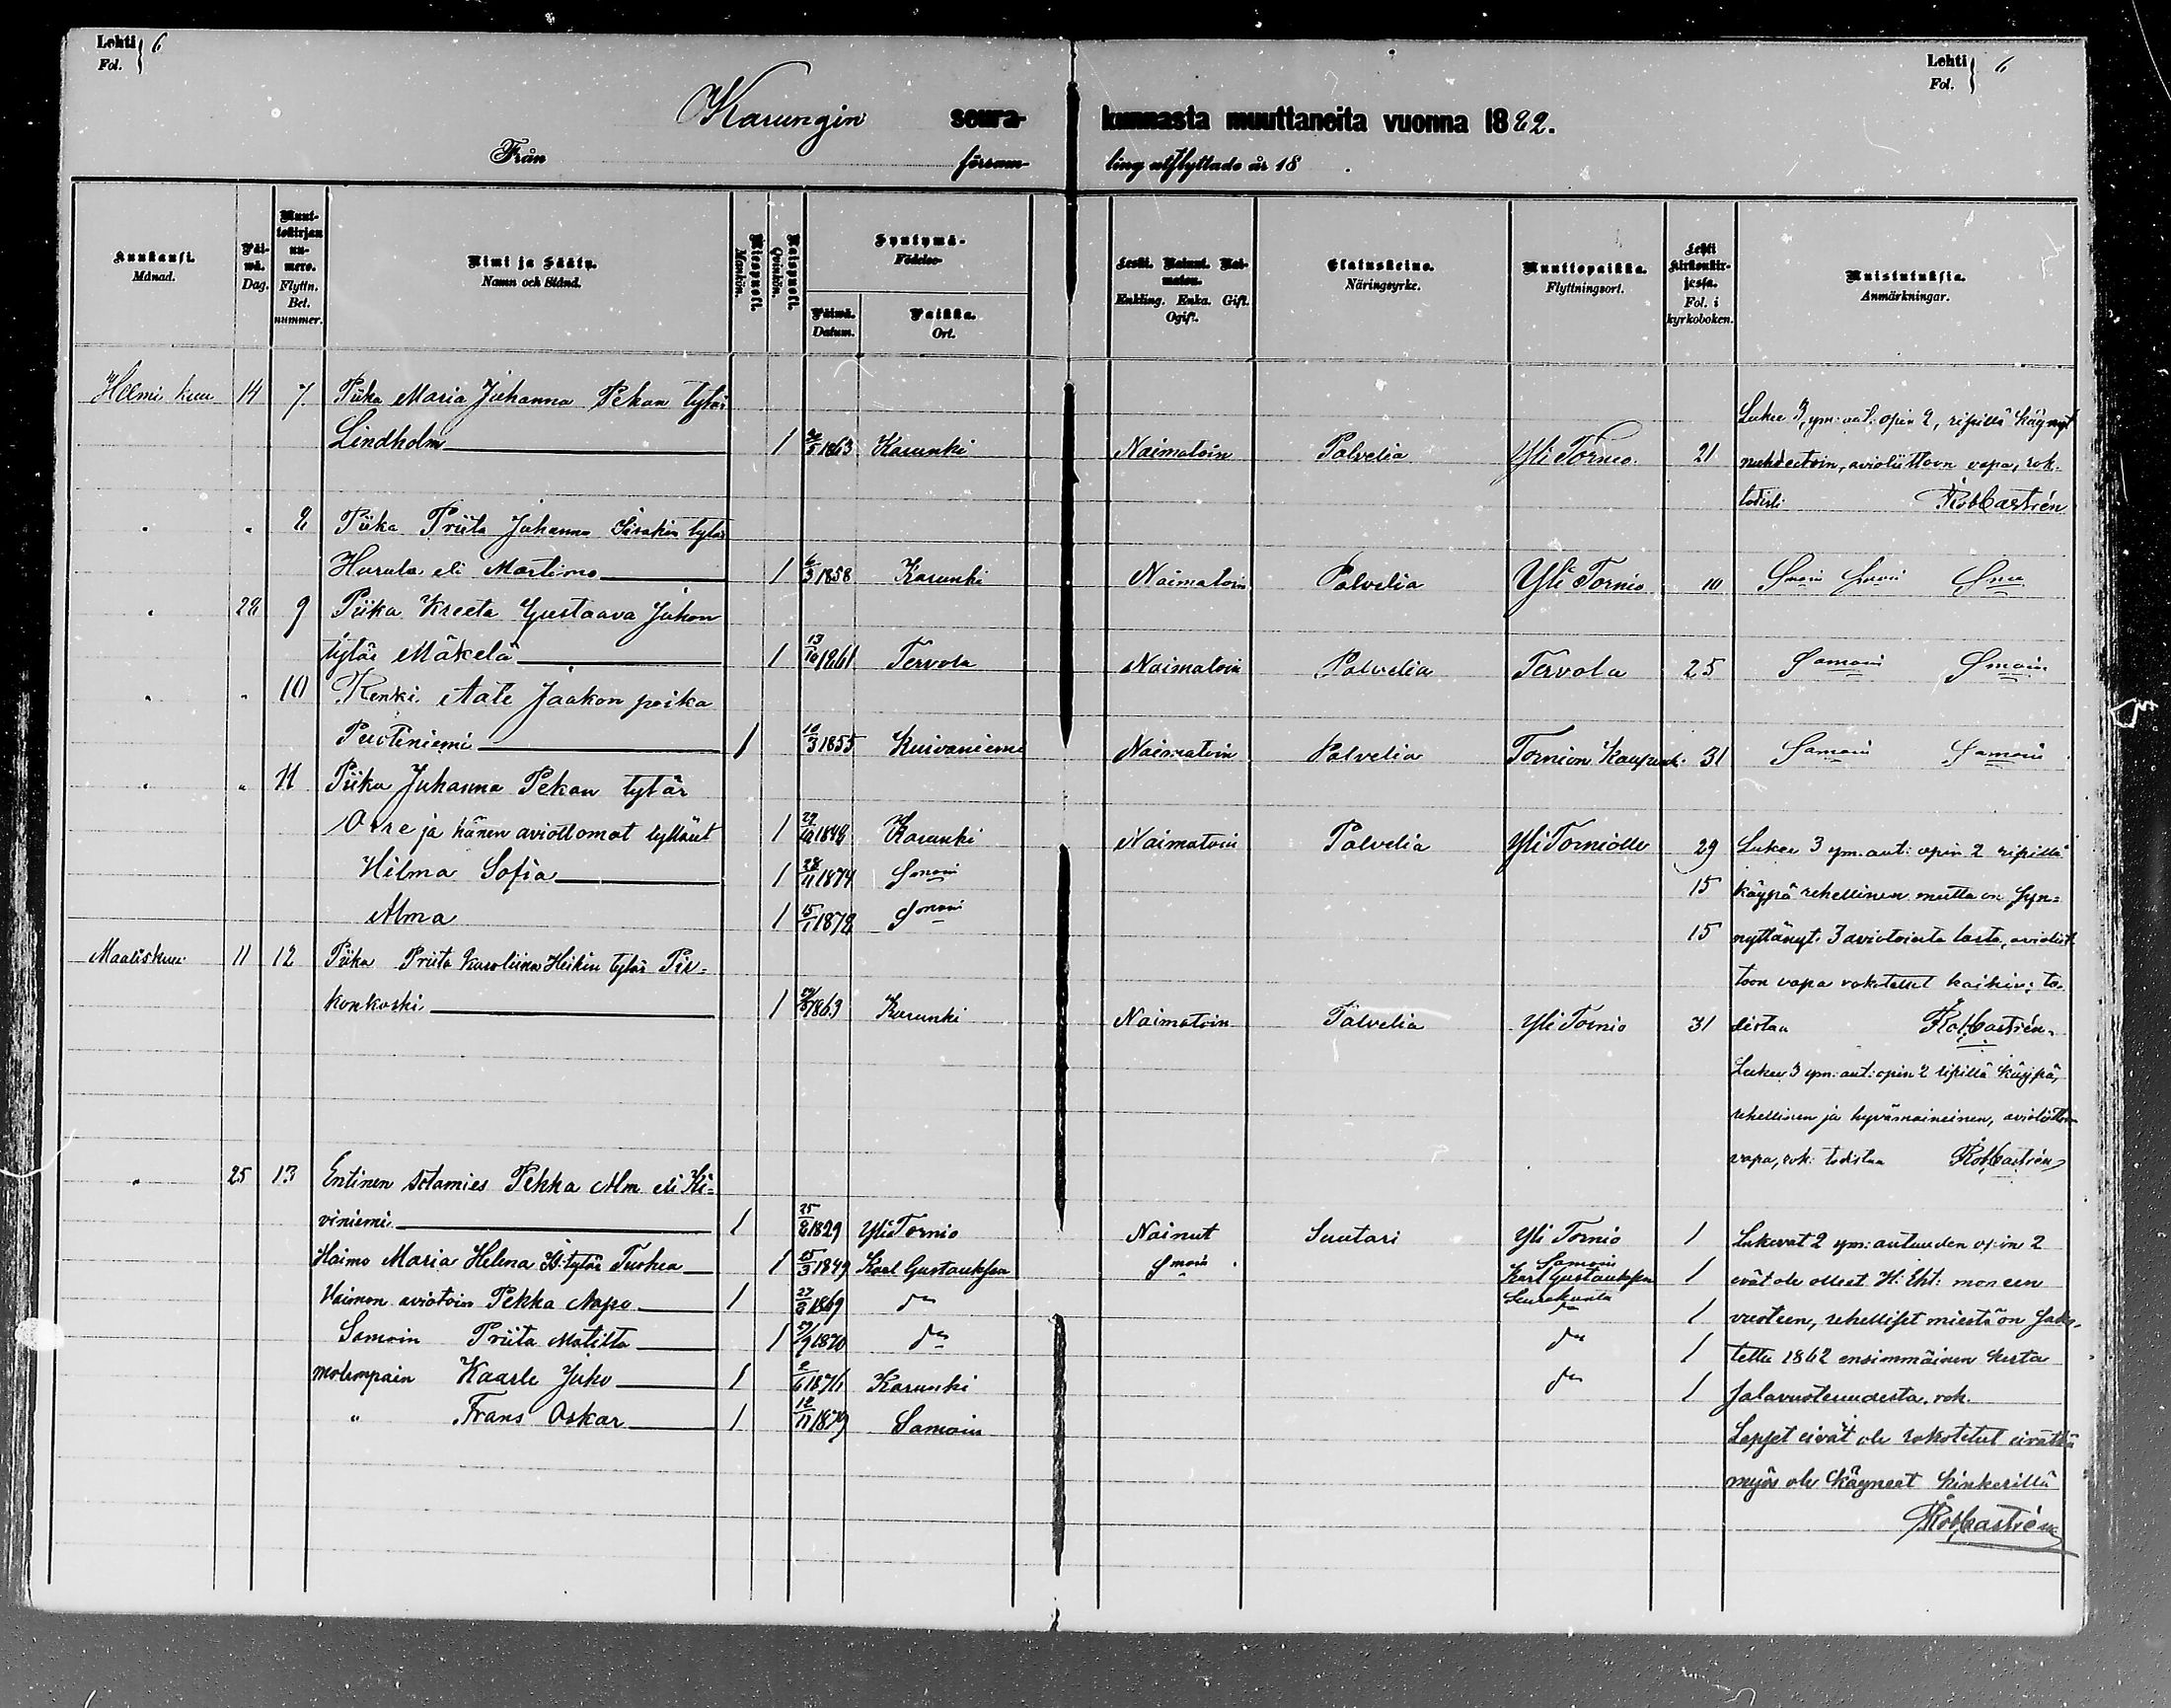 Lehti Fol. } 6
Lehti Fol. } 6
Karungin seurakunnasta muuttaneita vuonna 1882.
Från församling utflyttade år 18 .
Kuukausi. Månad.
Päiwä. Dag.
Muuttokirjan numero. Flyttn. Bet. nummer.
Nimi ja Sääty. Namn och Stånd.
Miespuoli. Mankön.
Naispuoli. Qvinkön.
Syntymä- Födelse-
Päiwä. Datum.
Paikka. Ort.
Leski. Nainut. Naimaton. Enkling. Enka. Gift. Ogift.
Elatuskeino. Näringsyrke.
Muuttopaikka. Flyttningsort.
Lehti kirkonkirjassa. Fol. i kyrkoboken.
Muistutuksia. Anmärkningar.
Helmi kuu 14 7. Piika Maria Juhanna Pekan tytär
Lukee 3, ym: aut: opin 2, ripillä käynyt
Lindholm 1 5 1863 Karunki Naimatoin Palvelia Yli Tornio 21 nuhteetoin, avioliittoon vapa, rok.
todisti Rob Castrén
" " 8 Piika Priita Johanna Iisakin tytär
Hurula eli Martimo 1 6/3 1858 Karunki Naimatoin Palvelia Yli Tornio 10 Smoin Smoin
" 28 9 Piika Kreeta Gustaava Juhon
tytär Mäkelä 1 13/10 1861 Tervola Naimatoin Palvelia Tervola 25 Samoin Smoin
" " 10 Renki Aate Jaakon poika
Perttiniemi 1 10/3 1855 Kuivaniemi Naimatoin Palvelia Tornion Kaupunk. 31 Samoin Samoin
" " 11 Piika Juhanna Pekan tytär
Orre ja hänen aviottomat tyttäret 1 29/10 1848 Karunki Naimatoin Palvelia Yli Torniolle 29 Lukee 3 ym. aut: opin 2 ripillä
Hilma Sofia 1 28/11 1874 Smoin 15 käypä rehellinen mutta on syn=
Alma 1 15/1 1878 Smoin 15 nyttänyt 3 aviotointa lasta, avioliit
Maaliskuu 11 12 Piika Priita Karoliina Heikin tytär Pir=
toon vapa rokotettut kaikin; to
konkoski 1 1863 Karunki Naimatoin Palvelia Yli Tornio 31 distaa Rob Castrén.
Lukee 3 ym: aut: opin 2 ripillä käypä,
rehellinen ja hyvämaineinen, avioliittoon
vapa, rok: todistaa Rob Castrén
" 25 13 Entinen sotamies Pekka Alm eli Ki=
viniemi 1 25/8 1829 Yli Tornio Nainut Suutari Yli Tornio 1 Lukevat 2 ym: autuuden opin 2
Waimo Maria Helena Is: tytär Tuohea 1 15/3 1849 Karl Gustauksen Smoin Samoin Karl Gustauksen Seurakunta 1 eivät ole olleet H: Eht. moneen
Vaimon aviotoin Pekka Napo 1 27/8 1869 do do 1 vuoteen, rehelliset miestä on sako-
Samoin Priita Matilta 1 1870 do do 1 tettu 1862 ensimmäinen kerta
molempain Kaarle Juho 1 2/6 1876 Karunki do 1 salavuoteuudesta. rok.
" Frans Oskar 1 12/11 1879 Samoin
Lapset eivät ole rokotetut eivätkä
myös ole käyneet kinkerillä
Rob Castrén